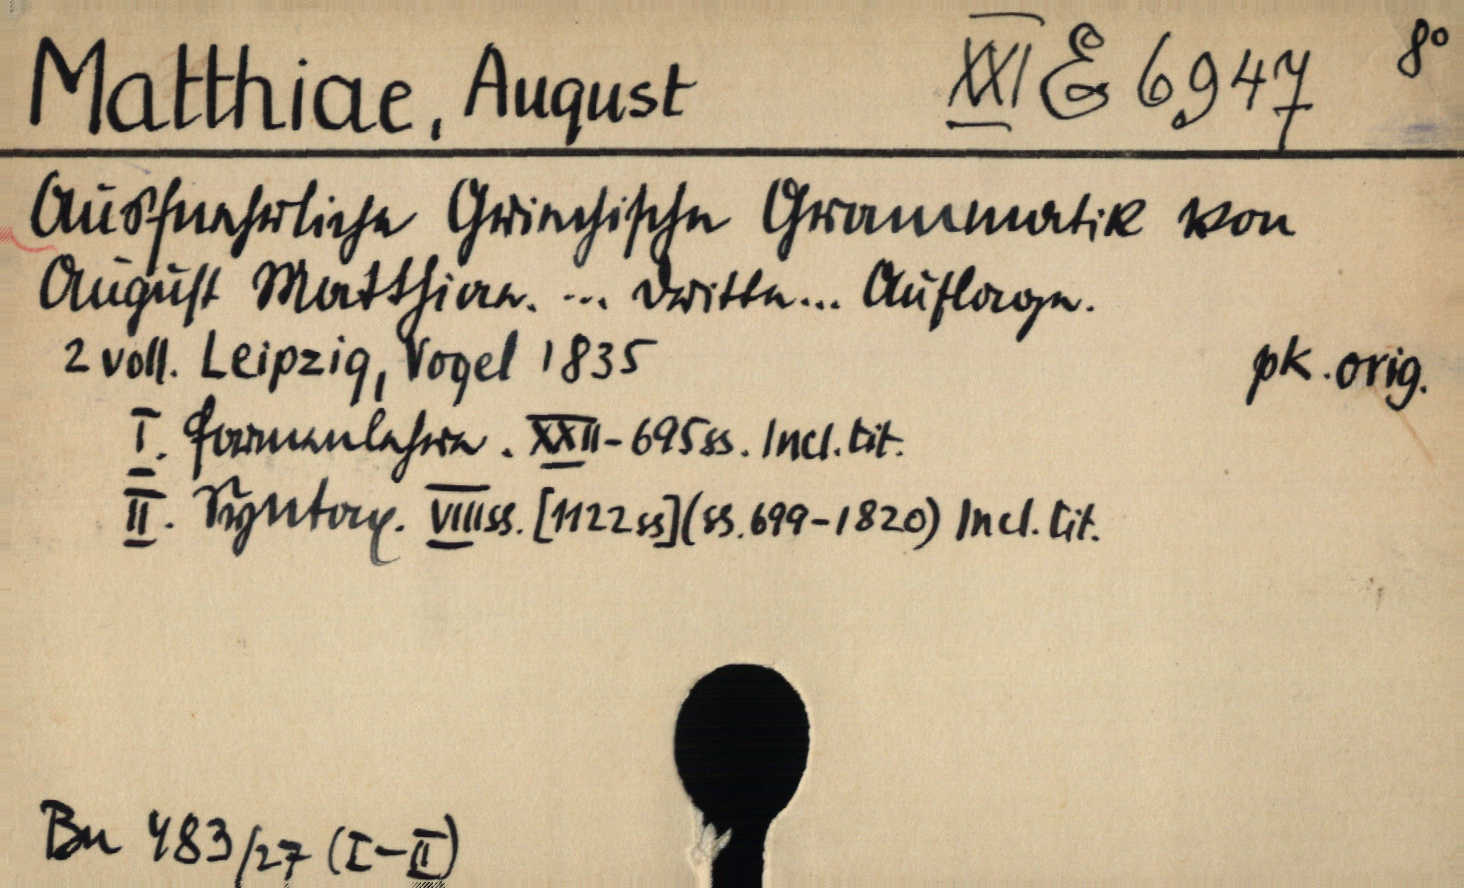 Matthiae, August XXI E 6947 8°
Ausfuehrliche Griechische Grammatik von
August Matthiae. ... dritte... Auflage.
2 voll. Leipzig, Vogel 1835 pk. orig.
I. Formenlehre. XXII-695 ss. Incl. tit.
II. Syntax. VIII ss. [1122 ss] (ss. 699-1820) Incl. tit.
Bn 483/27 (I-II)